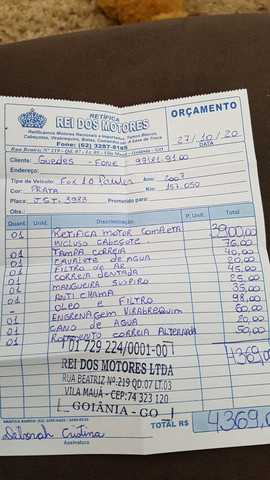 RETÍFICA
REI DOS MOTORES
Retificamos Motores Nacionais e Importados, Tornos, Blocos,
Cabeçotes, Virabrequins, Bielas, Comandos etc. à base de Troca
Fone: (62) 3287-8185
Rua Beatriz Nº 219 - Qd. 07 - Lt. 03 - Vila Mauá - Goiânia - GO
ORÇAMENTO
27/10/20
DATA
Cliente: Guedes - Fone 99181.9100
Endereço:
Tipo de Veículo: Fox 1.0 Ano: 2007
Cor: PRATA Km: 157.050
Placa: J.G.T. 3983 Prometido para:
Obs.:
Quant. Unid. Discriminação P. Unit. Total
01 RETIFICA MOTOR COMPLETA
INCLUSO CABEÇOTE.
01 TAMPA CORREIA
01 CAVALETE DE AGUA
01 FILTRO DE AR
01 CORREIA DENTADA
01 MANGUEIRA SUSPIRO
ANTI CHAMA
OLEO E FILTRO 98,00
01 ENGRENAGEM VIRABREQUIM 60,00
01 CANO DE AGUA 20,00
01 ROLAMENTO CORREIA ALTERNADA 50,00
01 729 224/0001-00
4369,00
REI DOS MOTORES LTDA
RUA BEATRIZ Nº.219 QD.07 LT.03
VILA MAUÁ - CEP:74 323 120
GOIÂNIA - GO
TOTAL R$ 4.369,0
Déborah Cristina
Assinatura